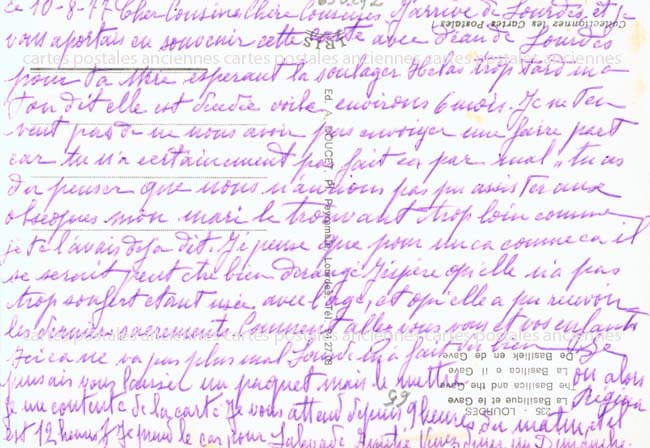 ce 10-8-77 Cher Cousine Chère Cousines J'arrive de Lourdes et je
vous apportais en souvenir cette carte avec d'eau de Lourdes
pour ta Mère esperant la soulager Helas trop tard m'a
t'on dit elle est décédée voila environs 6 mois. Je ne t'en
veut pas de ne nous avoir pas envoiyer une faire part
car tu n'a certainement pas fait ça par mal, tu as
du penser que nous n'aurions pas pu assister aux
obseques mon mari le trouvant trop loin comme
je te l'avais deja dit. Je pense que pour un ca comme ca il
se serait peut etre bien derangé J'éspère qu'elle n'a pas
trop soufert etant usée avec l'age, et qu'elle a pu recevoir
les derniers sacrements Comment allez vous vous et vos enfants
Ici ca ne va pas plus mal
pensais vous laisser un paquet mais le mettre ou alors
je me contente de la carte Je vous attend depuis 9 heures du matin, et il
est 12 heures Je prend le car pour
Regina
Bse
65
Collectionnez les Cartes Postales
IRIS
Ed. A. DOUCET, Pl. Peyramale, Lourdes, Tél. 94.27.08
235 - LOURDES
La Basilique et le Gave
The Basilica and the Gave
La Basilica e il Gave
De Basiliek en de Gave
cartes postales anciennes cartes postales anciennes cartes postales anciennes
cartes postales anciennes cartes postales anciennes cartes postales anciennes